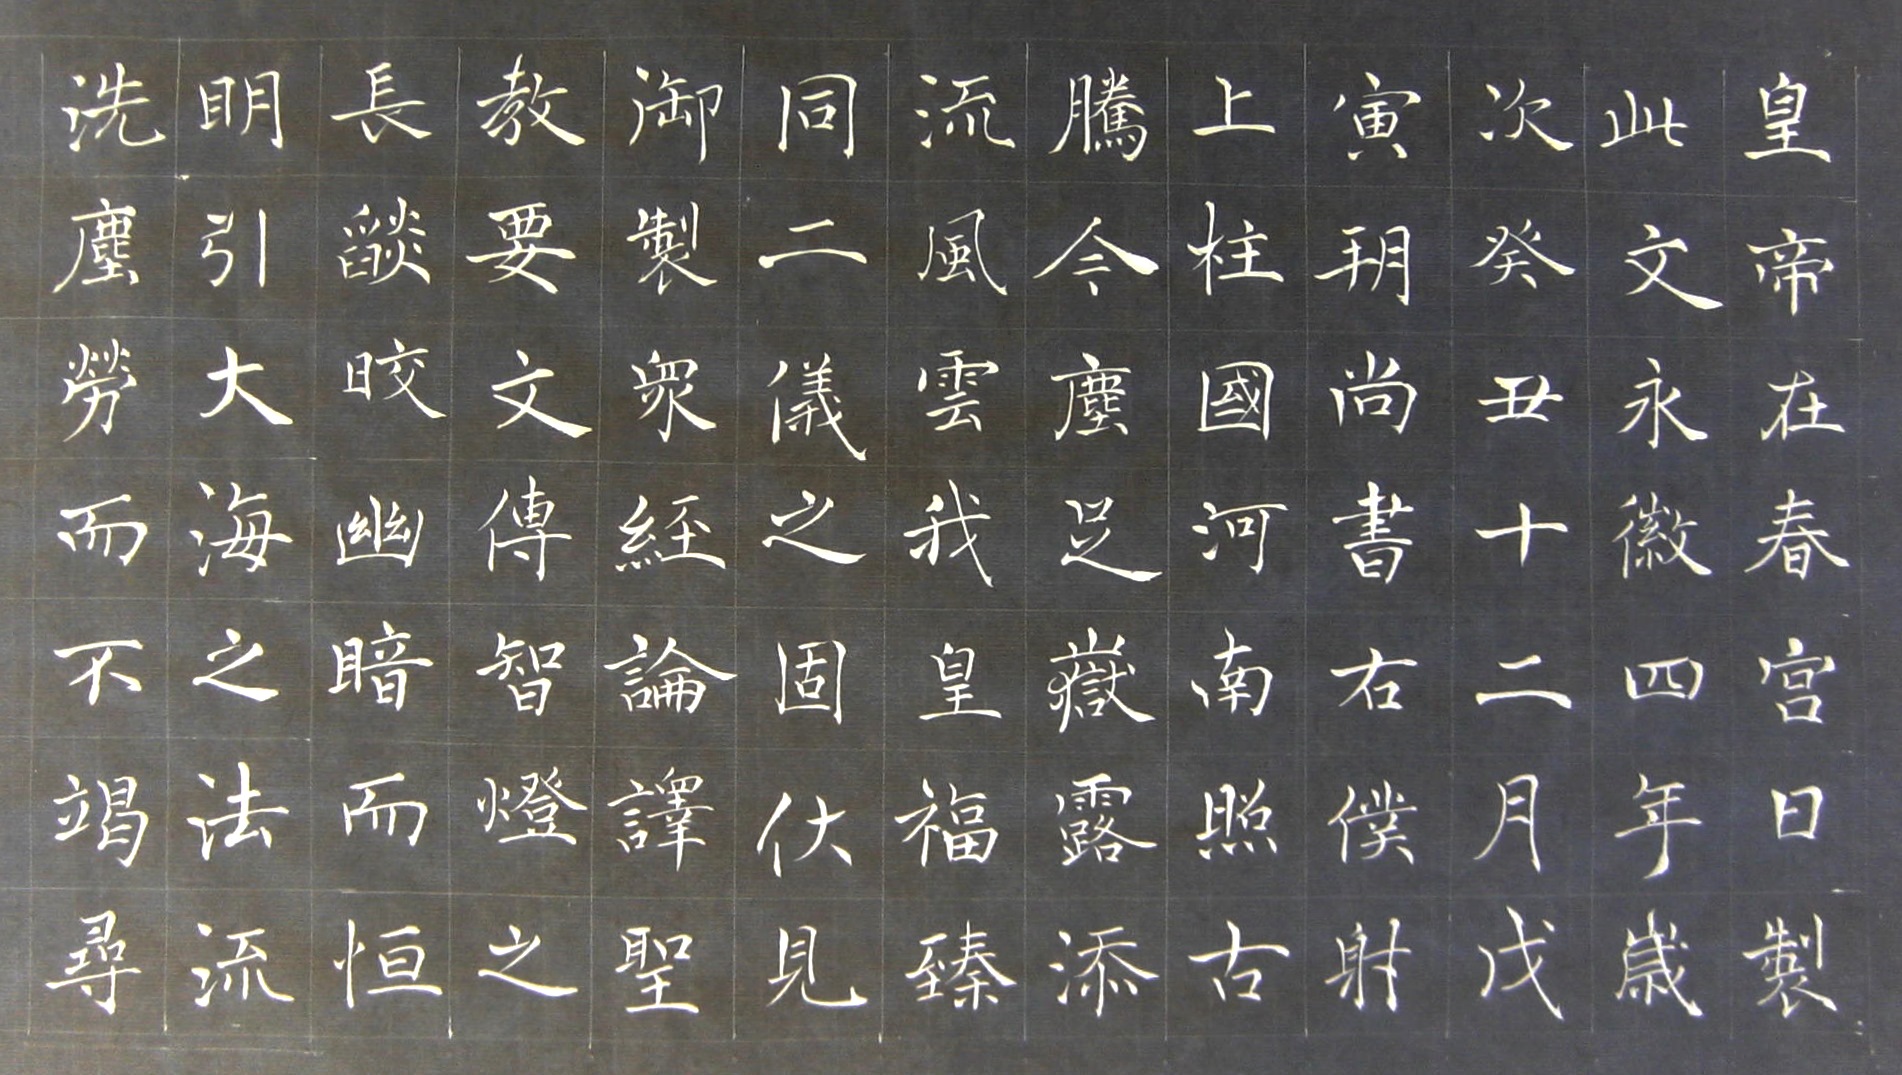 皇帝在春宮日製
此文永徽四年歲
次癸丑十二月戊
寅朔尚書右僕射
上柱國河南照古
騰今塵足嶽露添
流風雲我皇福臻
同二儀之固伏見
御製衆經論譯聖
教要文傳智燈之
長燄皎幽暗而恒
明引大海之法流
洗塵勞而不竭尋